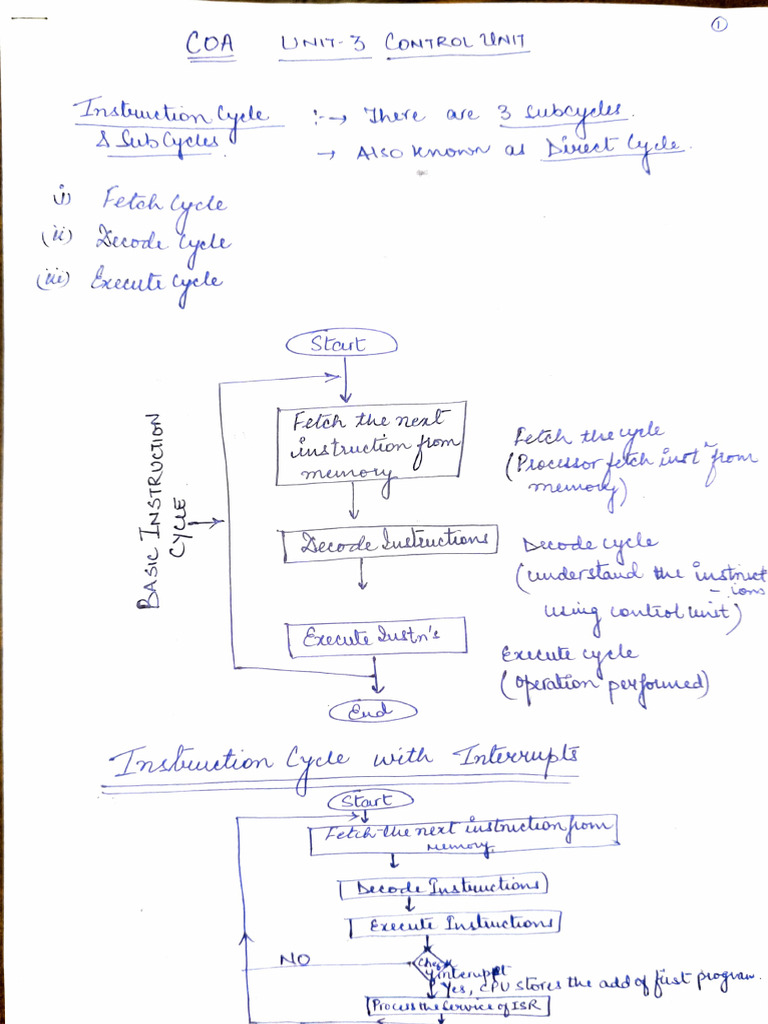 ①
COA UNIT-3 CONTROL UNIT
Instruction Cycle :→ There are 3 subcycles.
& SubCycles → Also known as Direct Cycle.
i) Fetch Cycle
(ii) Decode Cycle
(iii) Execute cycle
Start
Fetch the next
instruction from
memory
Fetch the cycle
(Processor fetch instⁿ from
memory)
BASIC INSTRUCTION
CYCLE
Decode Instructions
Decode cycle
(understand the instruct
-ions
using control unit)
Execute Instn's
Execute cycle
(operation performed)
End
Instruction Cycle with Interrupts
Start
Fetch the next instruction from
memory.
Decode Instructions
Execute Instructions
NO
Check
interrupt
Yes, CPU stores the add of first program.
Process the Service of ISR